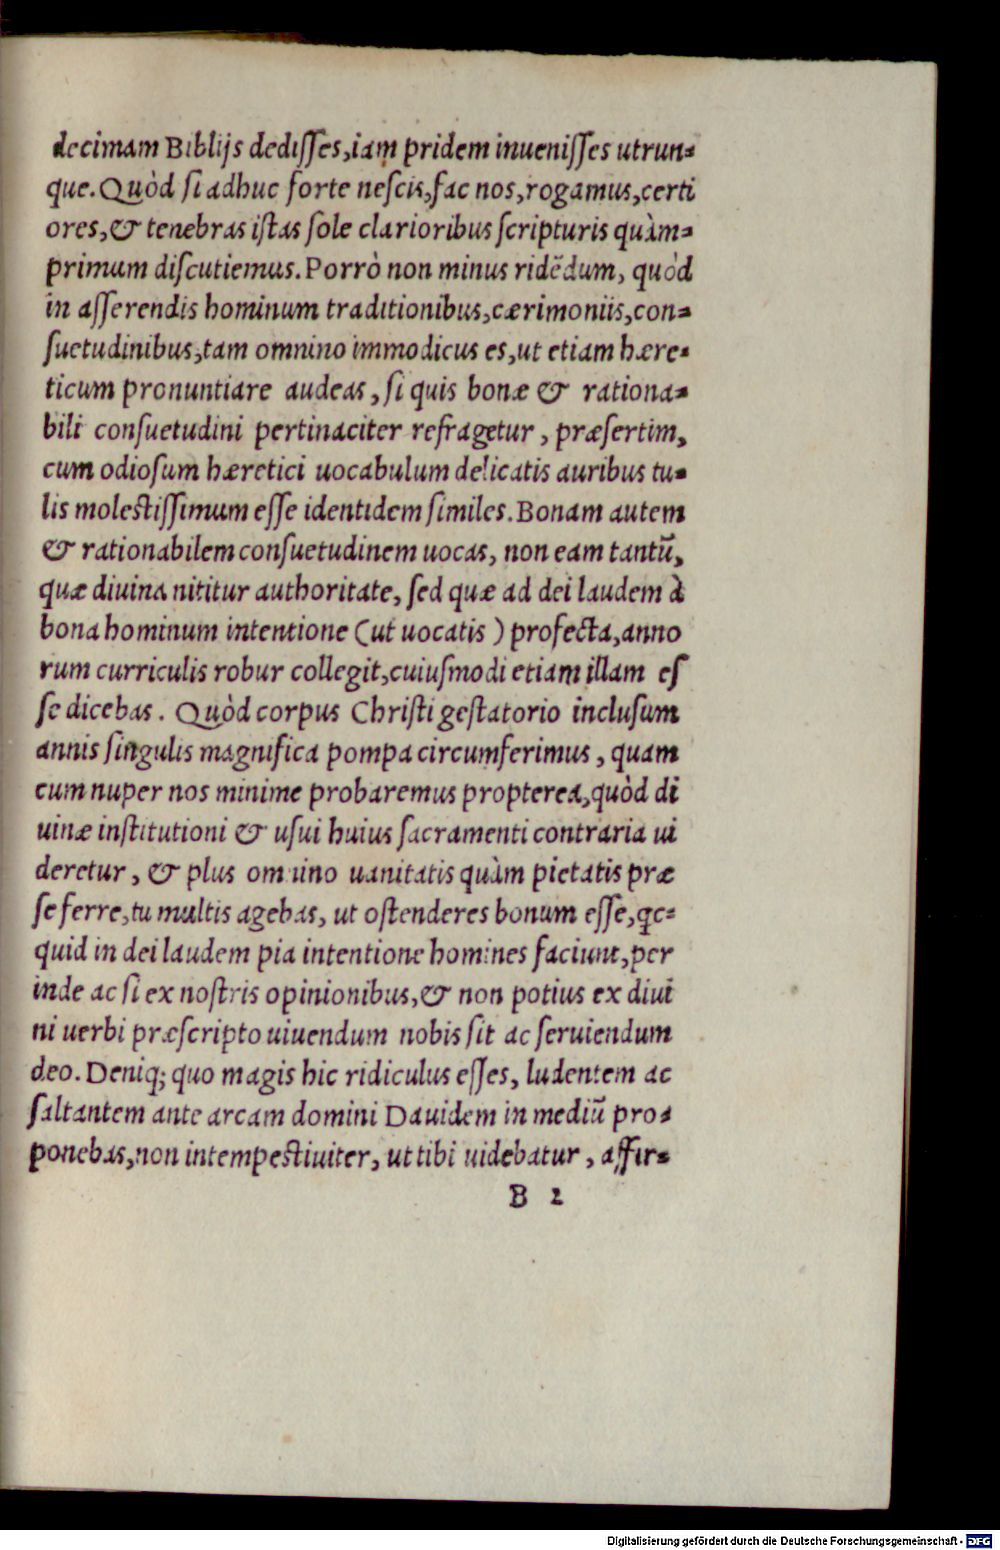 decimam Biblijs dedisſes,iam pridem inueniſſes utrun-
que. Quòd ſi adhuc forte neſcis,fac nos,rogamus,certi
ores,& tenebras iſtas ſole clarioribus ſcripturis quàm-
primum diſcutiemus. Porrò non minus ridẽdum, quòd
in aſſerendis hominum traditionibus,cærimoniis,con-
ſuetudinibus,tam omnino immodicus es,ut etiam hære-
ticum pronuntiare audeas, ſi quis bonæ & rationa-
bili conſuetudini pertinaciter refragetur, præſertim,
cum odioſum hæretici uocabulum delicatis auribus tu-
lis moleſtiſſimum eſſe identidem ſimiles. Bonam autem
& rationabilem conſuetudinem uocas, non eam tantũ,
quæ diuina nititur authoritate, ſed quæ ad dei laudem à
bona hominum intentione (ut uocatis) profecta,anno
rum curriculis robur collegit,cuiuſmodi etiam illam eſ
ſe dicebas. Quòd corpus Chriſti geſtatorio incluſum
annis ſingulis magnifica pompa circumferimus, quam
cum nuper nos minime probaremus propterea,quòd di
uinæ inſtitutioni & uſui huius ſacramenti contraria ui
deretur, & plus omnino uanitatis quàm pietatis præ
ſe ferre,tu multis agebas, ut oſtenderes bonum eſſe,
quid in dei laudem pia intentione homines faciunt,per
inde ac ſi ex noſtris opinionibus,& non potius ex diui
ni uerbi præſcripto uiuendum nobis ſit ac ſeruiendum
deo. Deniq; quo magis hic ridiculus eſſes, ludentem ac
ſaltantem ante arcam domini Dauidem in mediũ pro-
ponebas,non intempeſtiuiter, ut tibi uidebatur, affir-
B 2
Digitalisierung gefördert durch die Deutsche Forschungsgemeinschaft - DFG